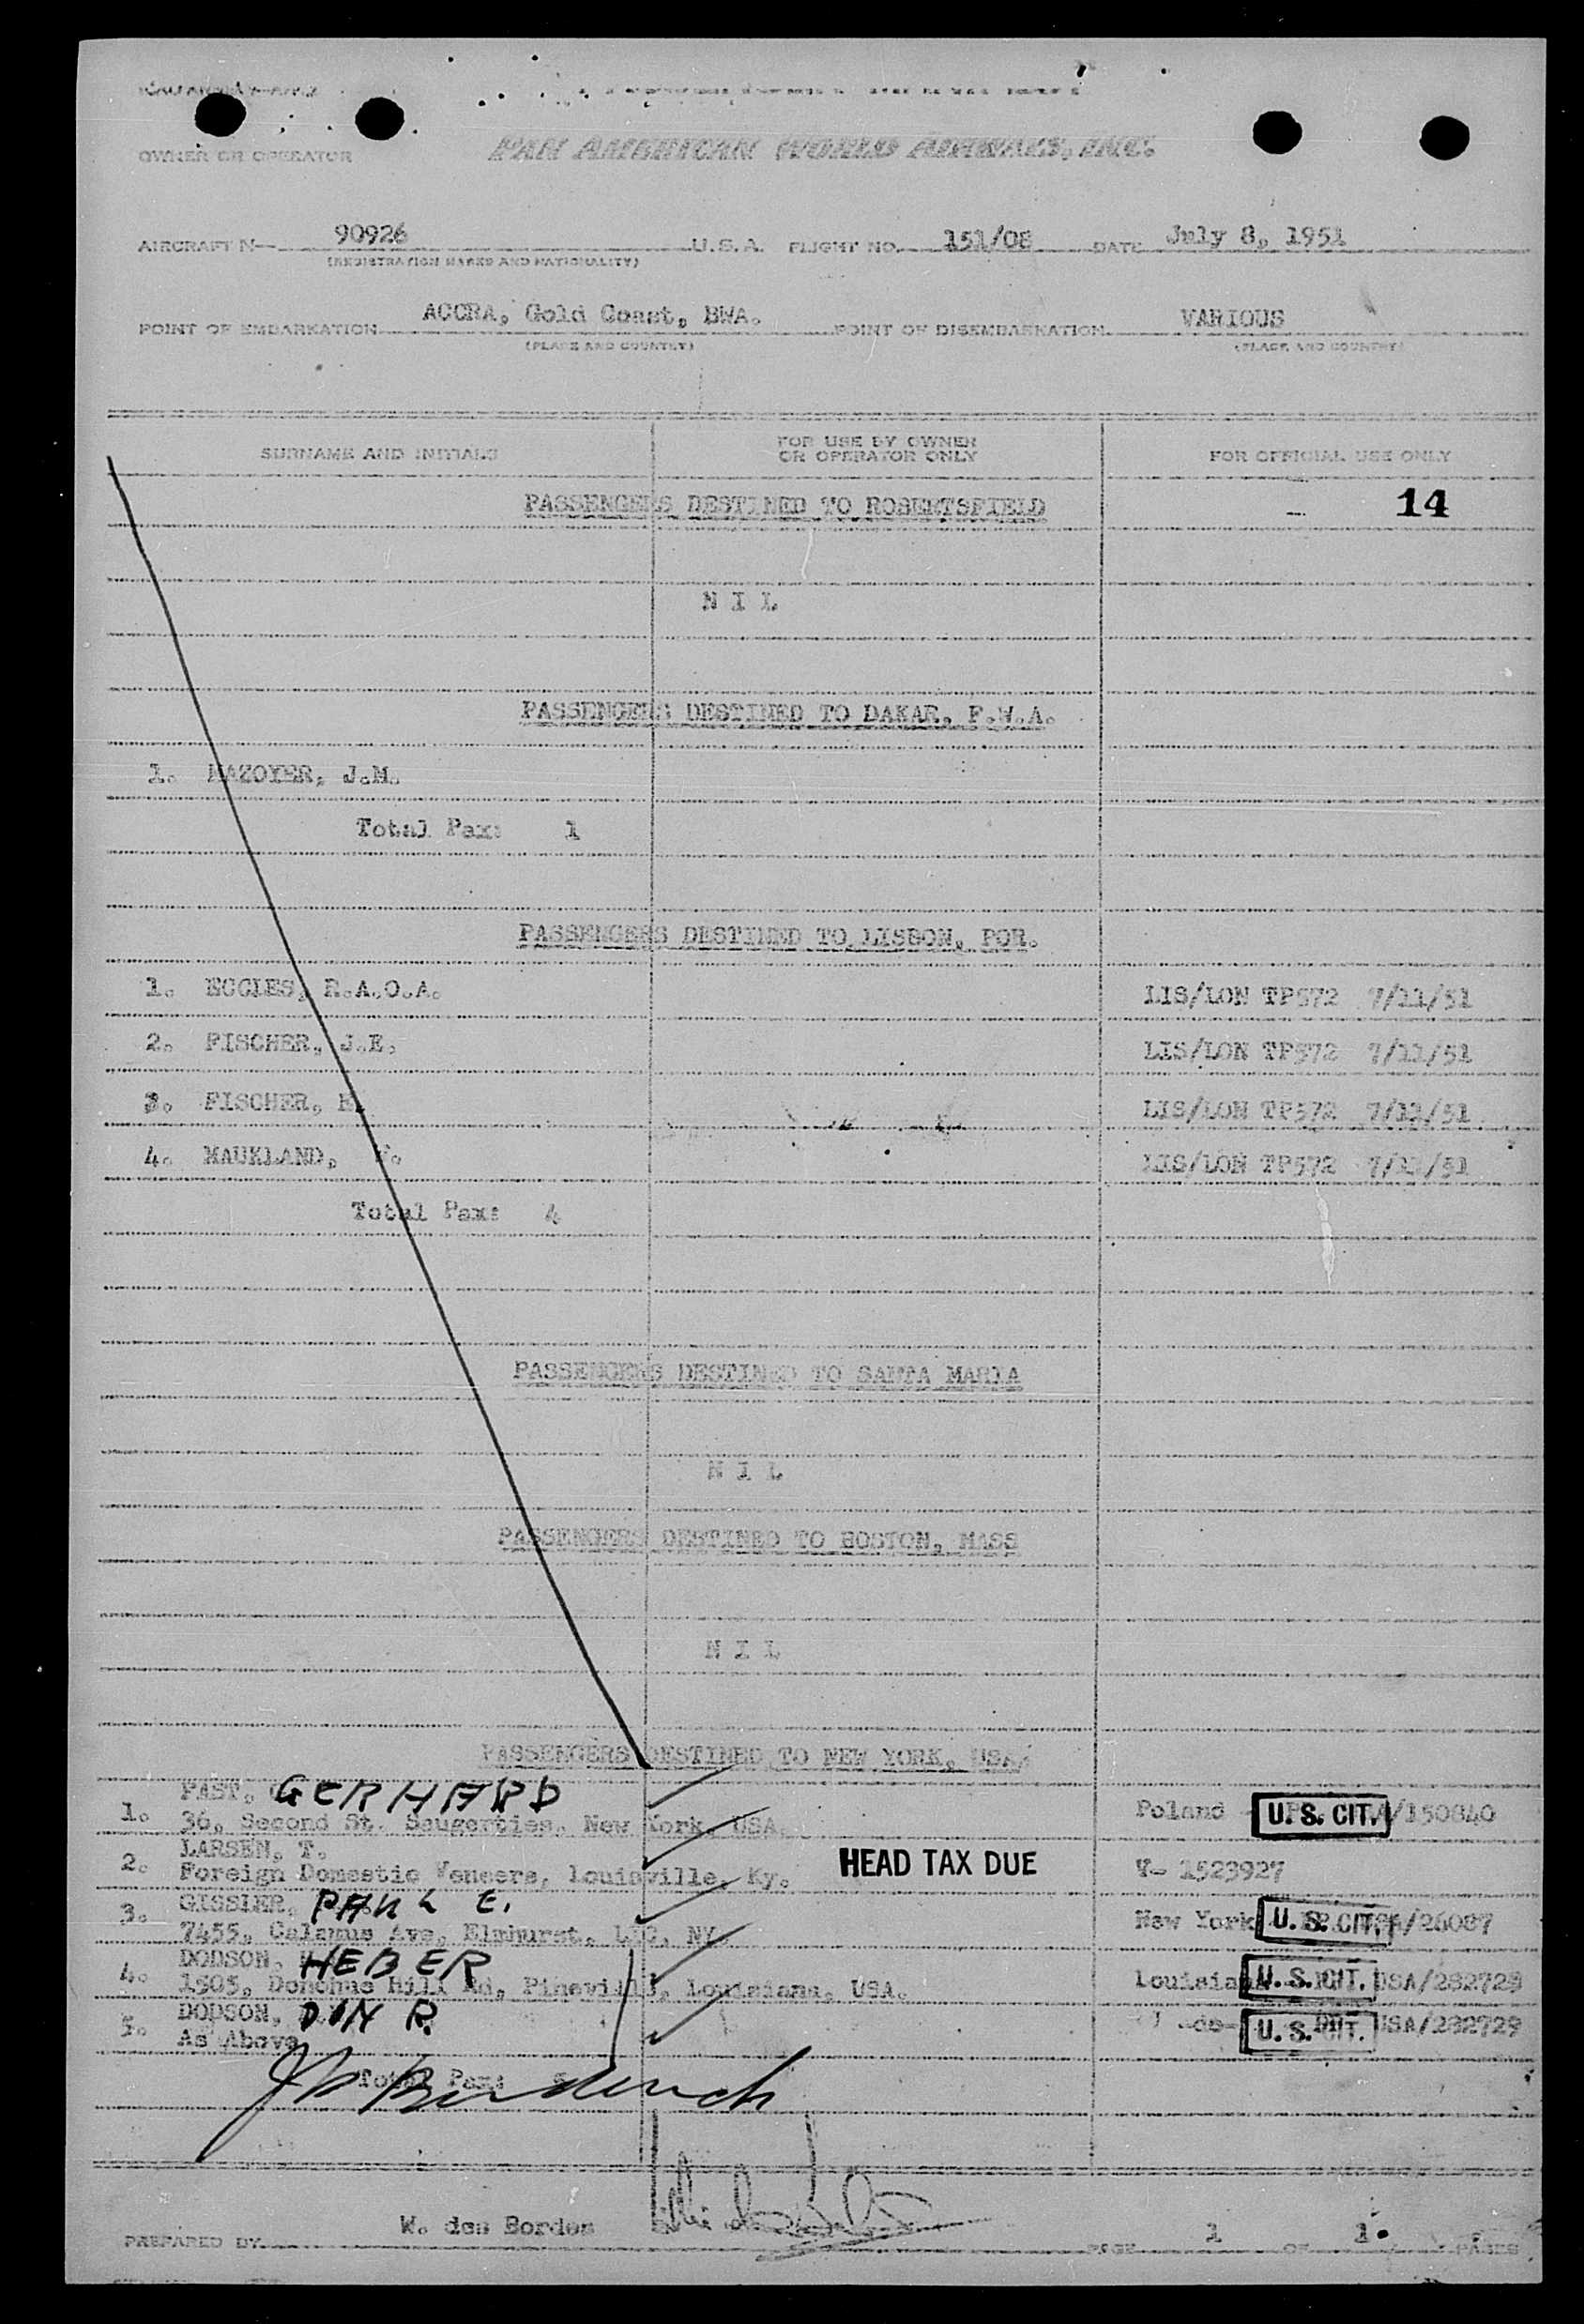 OWNER OR OPERATOR PAN AMERICAN WORLD AIRWAYS, INC.
AIRCRAFT N— 90926 U.S.A. FLIGHT NO. 151/08 DATE July 8, 1951
(REGISTRATION MARKS AND NATIONALITY)
POINT OF EMBARKATION ACCRA, Gold Coast, BWA. POINT OF DISEMBARKATION VARIOUS
(PLACE AND COUNTRY) (PLACE AND COUNTRY)
SURNAME AND INITIALS FOR USE BY OWNER OR OPERATOR ONLY FOR OFFICIAL USE ONLY
PASSENGERS DESTINED TO ROBERTSFIELD 14
N I L
PASSENGERS DESTINED TO DAKAR, F.W.A.
1. MAZOYER, J.M.
Total Pax: 1
PASSENGERS DESTINED TO LISBON, POR.
1. ECCLES, R.A.O.A. LIS/LON TP572 7/11/51
2. FISCHER, J.E. LIS/LON TP572 7/11/51
3. FISCHER, LIS/LON TP572 7/11/51
4. MAUKLAND, LIS/LON TP572 7/11/51
Total Pax: 4
PASSENGERS DESTINED TO SANTA MARIA
N I L
PASSENGERS DESTINED TO BOSTON, MASS
N I L
PASSENGERS DESTINED TO NEW YORK, USA.
FAST, GERHARD
1. 36, Second St. Saugerties, New York, USA. Poland U.S. CIT. /150840
LARSEN, T.
2. Foreign Domestic Veneers, Louisville, Ky. HEAD TAX DUE V- 1523927
GISSLER, PAUL E.
3. 7455, Calamus Ave, Elmhurst, LIC, NY. New York U.S. CIT. /26087
DODSON, HEBER
4. 1505, Donohue Hill Rd, Pineville, Louisiana, USA. U.S. CIT. USA/282729
DODSON, DON R.
5. As Above -do- U.S. CIT. USA/282729
Total Pax:
PREPARED BY W. den Bordes PAGE 1 OF 1. PAGES